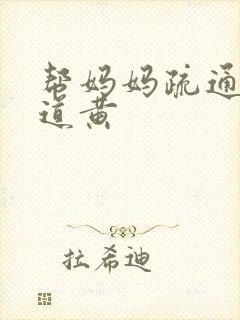 帮妈妈疏通
道黄
拉希迪